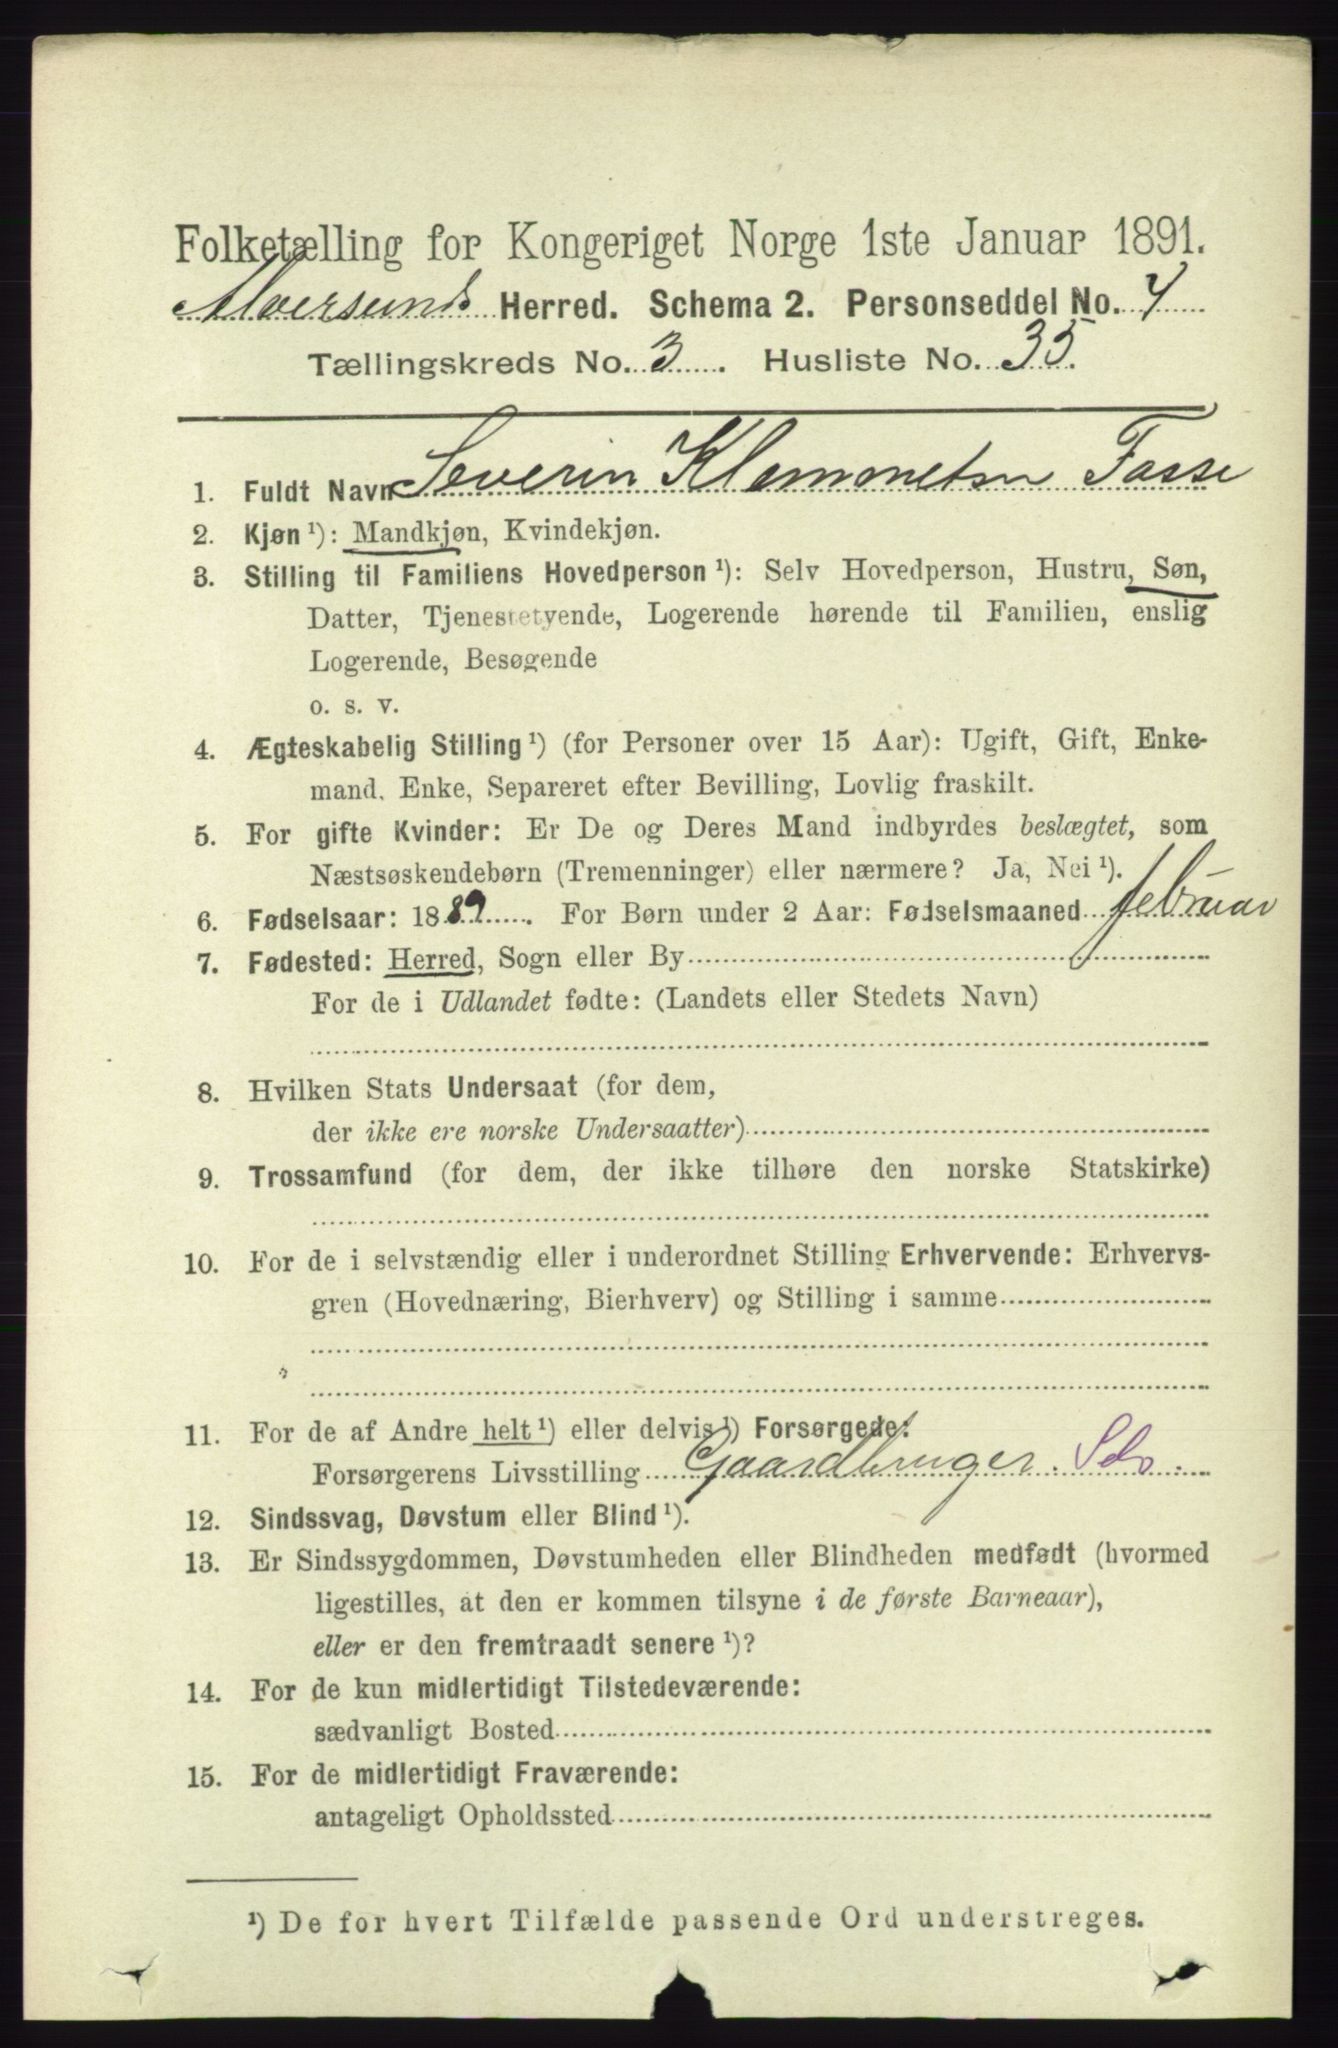 Folketælling for Kongeriget Norge 1ste Januar 1891.
Alversunds Herred. Schema 2. Personseddel No. 4
Tællingskreds No. 3. Husliste No. 35.
1. Fuldt Navn Severin Klemmetsen Fosse
2. Kjøn ¹): Mandkjøn, Kvindekjøn.
3. Stilling til Familiens Hovedperson ¹): Selv Hovedperson, Hustru, Søn,
Datter, Tjenestetyende, Logerende hørende til Familien, enslig
Logerende, Besøgende
o. s. v.
4. Ægteskabelig Stilling ¹) (for Personer over 15 Aar): Ugift, Gift, Enke-
mand, Enke, Separeret efter Bevilling, Lovlig fraskilt.
5. For gifte Kvinder: Er De og Deres Mand indbyrdes beslægtet, som
Næstsøskendebørn (Tremenninger) eller nærmere? Ja, Nei ¹).
6. Fødselsaar: 1889. For Børn under 2 Aar: Fødselsmaaned februar
7. Fødested: Herred, Sogn eller By
For de i Udlandet fødte: (Landets eller Stedets Navn)
8. Hvilken Stats Undersaat (for dem,
der ikke ere norske Undersaatter)
9. Trossamfund (for dem, der ikke tilhøre den norske Statskirke)
10. For de i selvstændig eller i underordnet Stilling Erhvervende: Erhvervs-
gren (Hovednæring, Bierhverv) og Stilling i samme
11. For de af Andre helt ¹) eller delvis ¹) Forsørgede:
Forsørgerens Livsstilling Gaardbruger. Selv.
12. Sindssvag, Døvstum eller Blind ¹).
13. Er Sindssygdommen, Døvstumheden eller Blindheden medfødt (hvormed
ligestilles, at den er kommen tilsyne i de første Barneaar),
eller er den fremtraadt senere ¹)?
14. For de kun midlertidigt Tilstedeværende:
sædvanligt Bosted
15. For de midlertidigt Fraværende:
antageligt Opholdssted
¹) De for hvert Tilfælde passende Ord understreges.